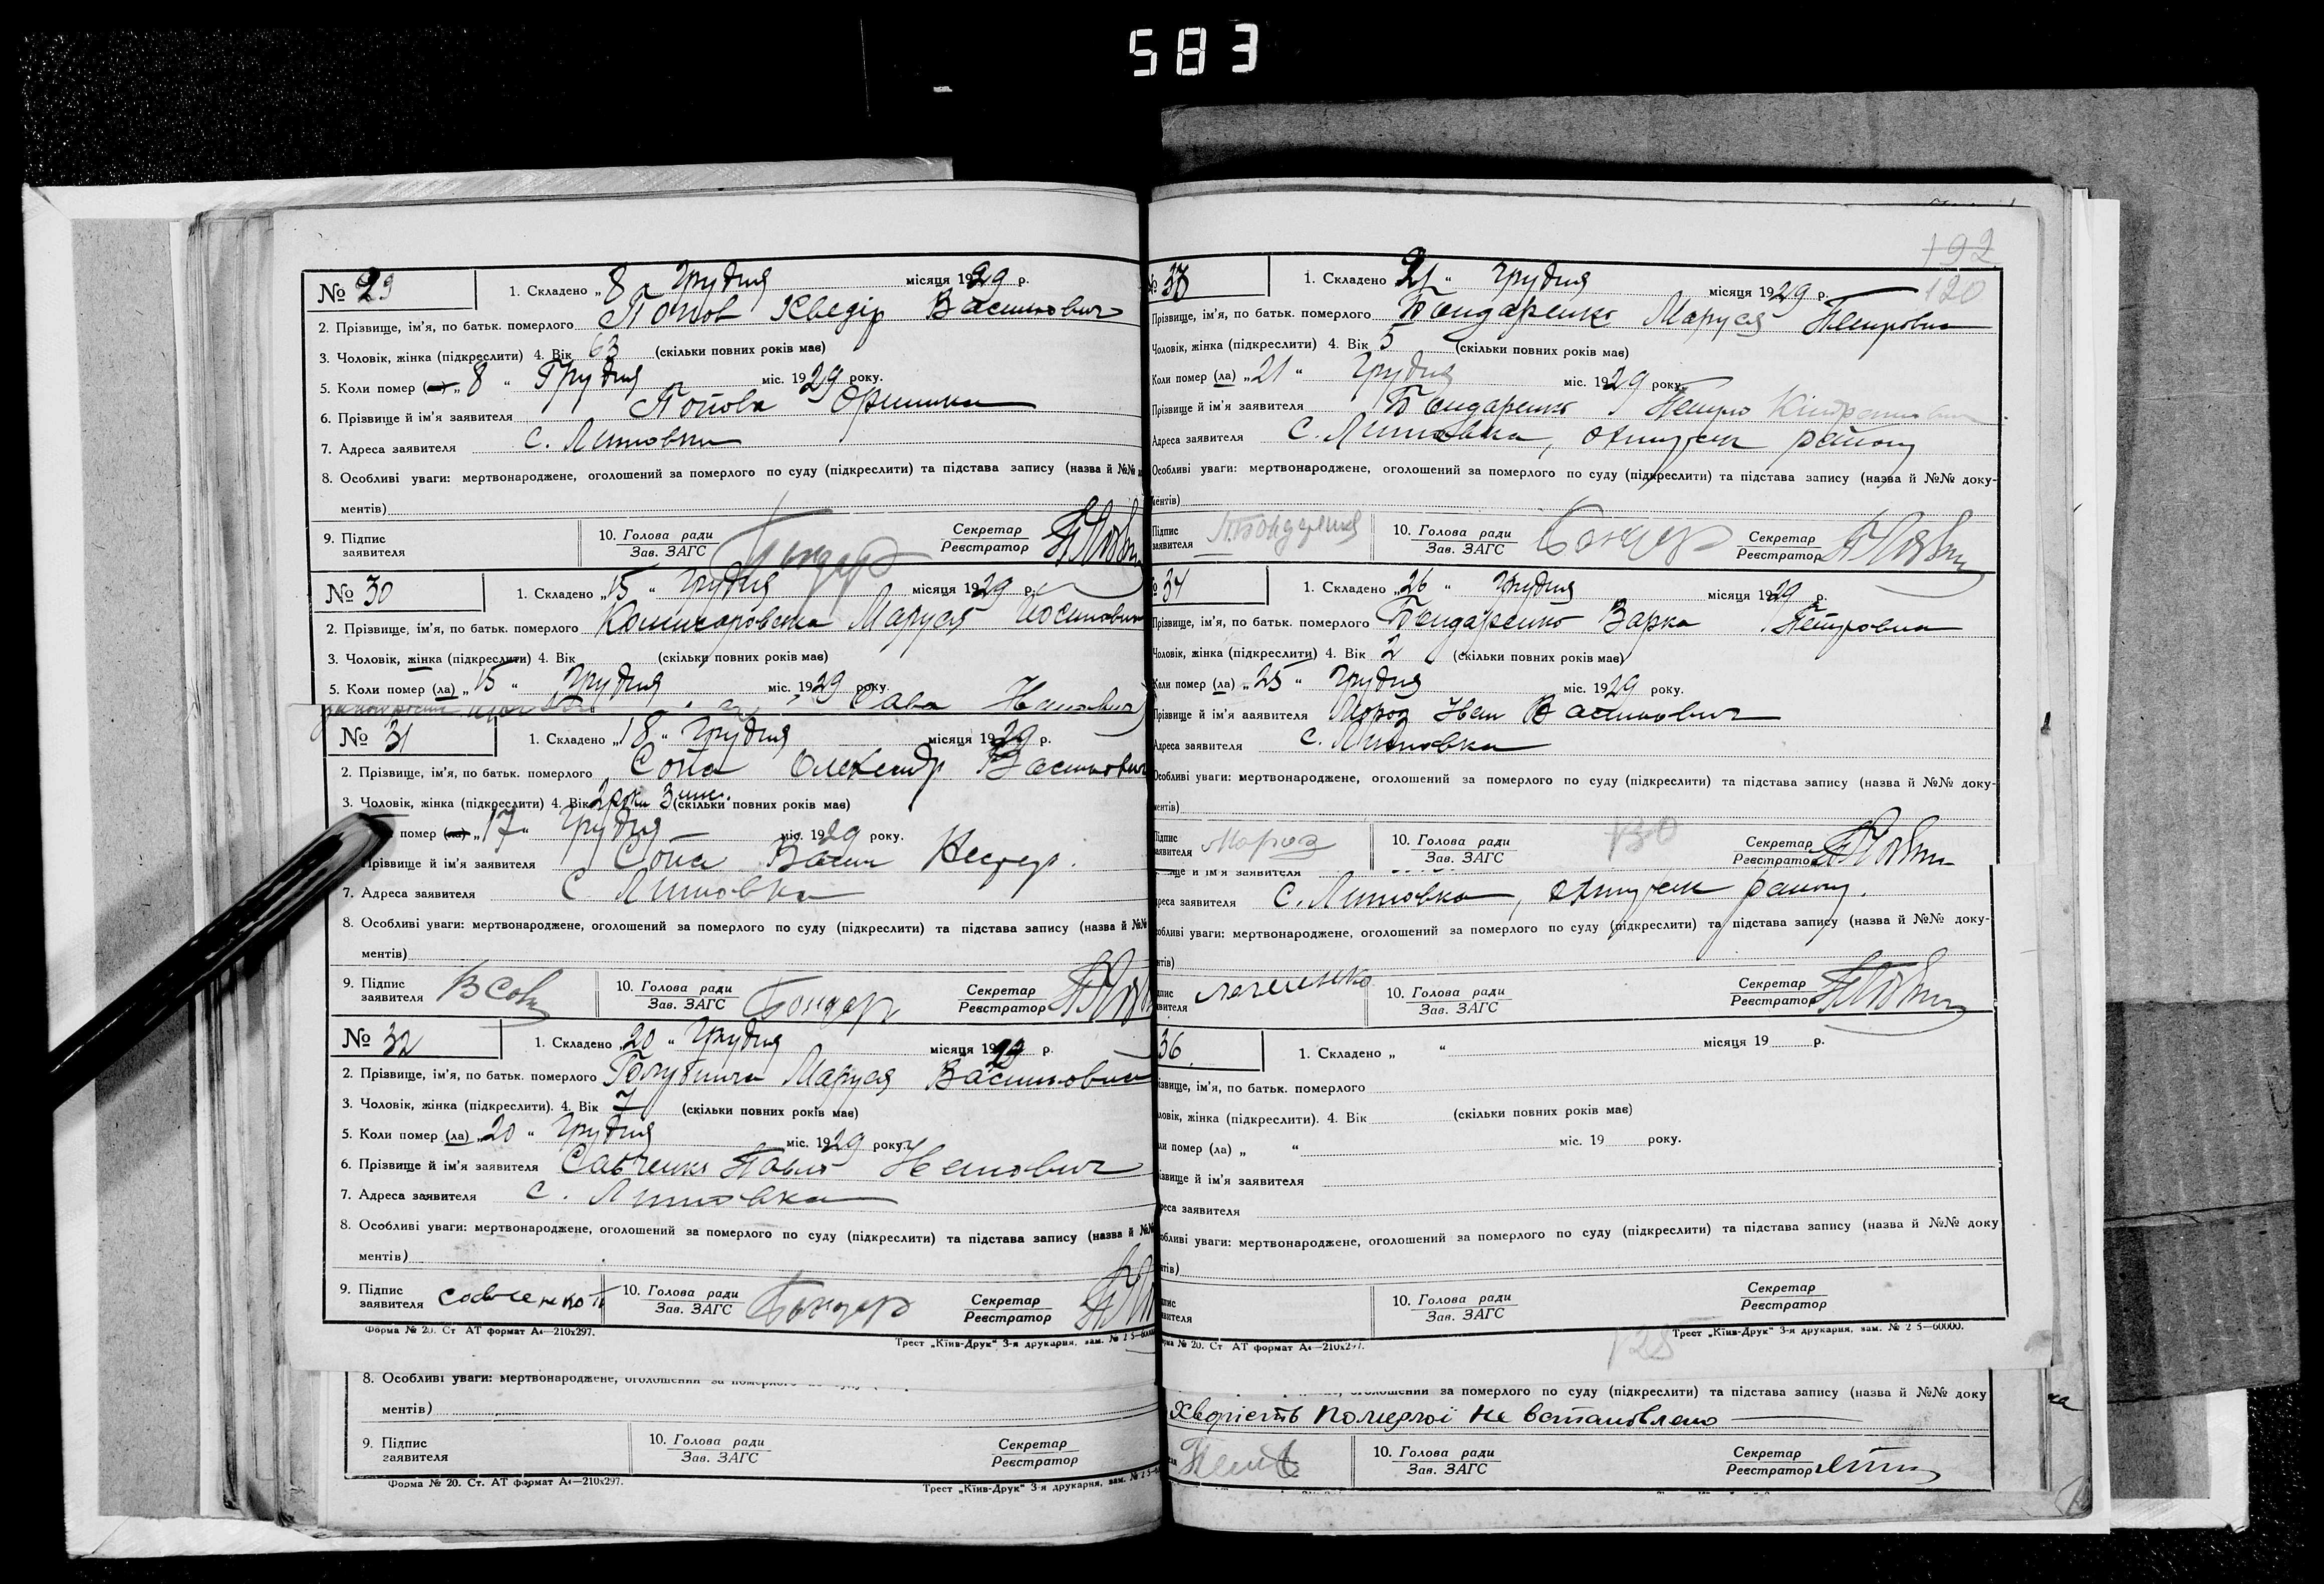 583
№ 29 1. Складено „8“ Грудня місяця 1929 р.
2. Прізвище, ім'я, по батьк. померлого Попов Хведір Васильович
3. Чоловік, жінка (підкреслити) 4. Вік 63 (скільки повних років має)
5. Коли помер (ла) „8“ Грудня міс. 1929 року.
6. Прізвище й ім'я заявителя Попова
7. Адреса заявителя с. Липовка
8. Особливі уваги: мертвонароджене, оголошений за померлого по суду (підкреслити) та підстава запису (назва й №№
ментів)
9. Підпис заявителя 10. Голова ради Зав. ЗАГС Бондар Секретар Реєстратор
№ 30 1. Складено „15“ Грудня місяця 1929 р.
2. Прізвище, ім'я, по батьк. померлого Маруся
3. Чоловік, жінка (підкреслити) 4. Вік (скільки повних років має)
5. Коли помер (ла) „15“ Грудня міс. 1929 року.
Сава
№ 31 1. Складено „18“ Грудня місяця 1929 р.
2. Прізвище, ім'я, по батьк. померлого Сопа Олександр Васильович
3. Чоловік, жінка (підкреслити) 4. Вік 2 роки 3 міс. (скільки повних років має)
помер (ла) „17“ Грудня міс. 1929 року.
Прізвище й ім'я заявителя Сопа
7. Адреса заявителя с Липовка
8. Особливі уваги: мертвонароджене, оголошений за померлого по суду (підкреслити) та підстава запису (назва й №№
ментів)
9. Підпис заявителя 10. Голова ради Зав. ЗАГС Бондар Секретар Реєстратор
№ 32 1. Складено „20“ Грудня місяця 1929 р.
2. Прізвище, ім'я, по батьк. померлого Маруся Васильовна
3. Чоловік, жінка (підкреслити). 4. Вік 7 (скільки повних років має)
5. Коли помер (ла) „20“ Грудня міс. 1929 року.
6. Прізвище й ім'я заявителя Савченко Павло
7. Адреса заявителя с. Липовка
8. Особливі уваги: мертвонароджене, оголошений за померлого по суду (підкреслити) та підстава запису (назва й №№
ментів)
9. Підпис заявителя Савченко П 10. Голова ради Зав. ЗАГС Бондар Секретар Реєстратор
Форма № 20. Ст АТ формат А4—210х297. Трест „Київ-Друк“ 3-я друкарня, зам. № 2 5—60000
8. Особливі уваги: мертвонароджене, оголошений за померлого
ментів)
9. Підпис заявителя 10. Голова ради Зав. ЗАГС Секретар Реєстратор
Форма № 20. Ст. АТ формат А4—210х297. Трест „Київ-Друк“ 3-я друкарня, зам. № 2 5
192
120
№ 33 1. Складено 21“ Грудня місяця 1929 р.
Прізвище, ім'я, по батьк. померлого Бендаренко Маруся Петровна
Чоловік, жінка (підкреслити) 4. Вік 5 (скільки повних років має)
Коли помер (ла) „21“ Грудня міс. 1929 року.
Прізвище й ім'я заявителя Бендаренко Петро
Адреса заявителя С. Липовка, району
Особливі уваги: мертвонароджене, оголошений за померлого по суду (підкреслити) та підстава запису (назва й №№ доку-
ментів)
Підпис заявителя 10. Голова ради Зав. ЗАГС Бондар Секретар Реєстратор
34 1. Складено „26“ Грудня місяця 1929 р.
Прізвище, ім'я, по батьк. померлого Бендаренко Варка Петровна
Чоловік, жінка (підкреслити) 4. Вік 2 (скільки повних років має)
Коли помер (ла) „25“ Грудня міс. 1929 року.
Прізвище й ім'я заявителя Мороз Іван Васильович
Адреса заявителя с. Липовка
Особливі уваги: мертвонароджене, оголошений за померлого по суду (підкреслити) та підстава запису (назва й №№ доку-
ментів)
Підпис заявителя Мороз 10. Голова ради Зав. ЗАГС 130 Секретар Реєстратор
ще й ім'я заявителя
реса заявителя С. Липовка, району.
обливі уваги: мертвонароджене, оголошений за померлого по суду (підкреслити) та підстава запису (назва й №№ доку-
нтів)
10. Голова ради Зав. ЗАГС Секретар Реєстратор
36. 1. Складено „ “ місяця 19 р.
ізвище, ім'я, по батьк. померлого
ловік, жінка (підкреслити). 4. Вік (скільки повних років має)
ли помер (ла) „ “ міс. 19 року.
ізвище й ім'я заявителя
реса заявителя
обливі уваги: мертвонароджене, оголошений за померлого по суду (підкреслити) та підстава запису (назва й №№ доку
нтів)
10. Голова ради Зав. ЗАГС Секретар Реєстратор
№ 20. Ст АТ формат А4—210х297. 125 Трест „Київ-Друк“ 3-я друкарня, зам. № 2 5—60000.
за померлого по суду (підкреслити) та підстава запису (назва й №№ доку
Хворість померлої не встановлено
10. Голова ради Зав. ЗАГС Секретар Реєстратор